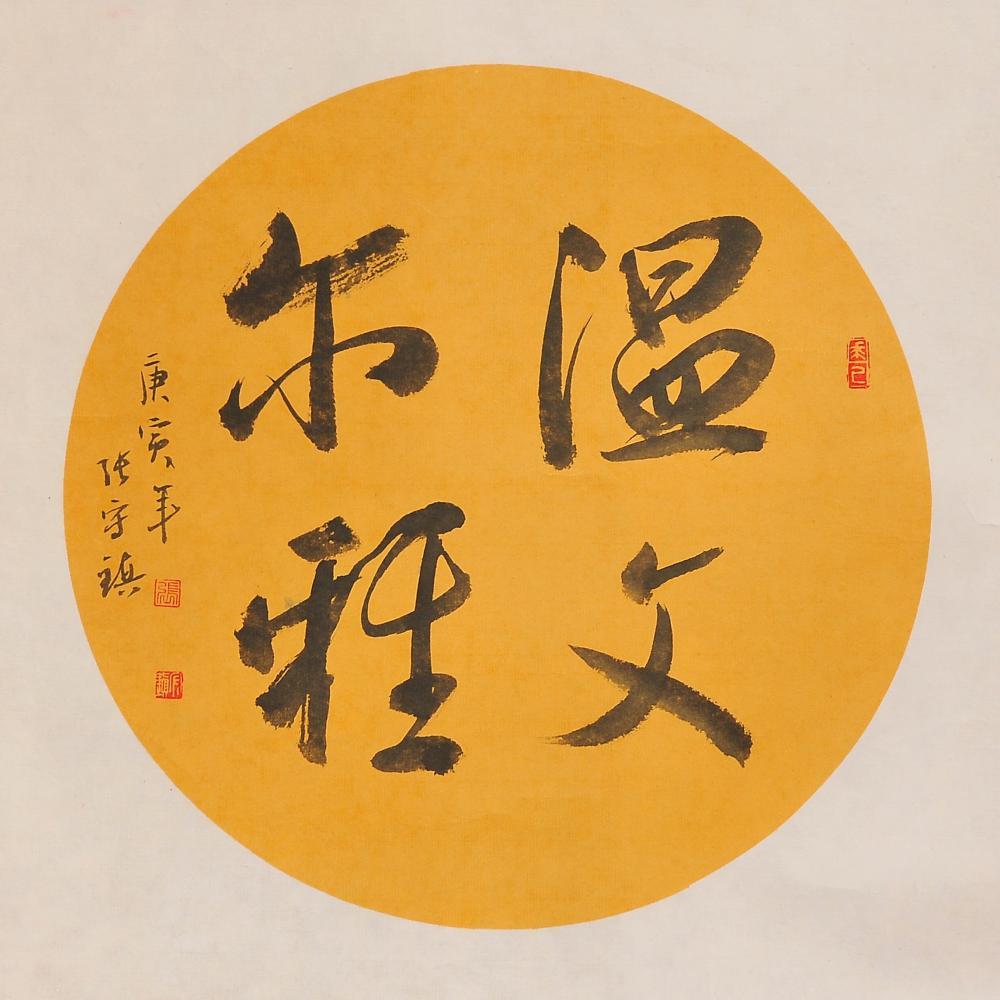 温文
尔雅
庚寅年
张守镇
張